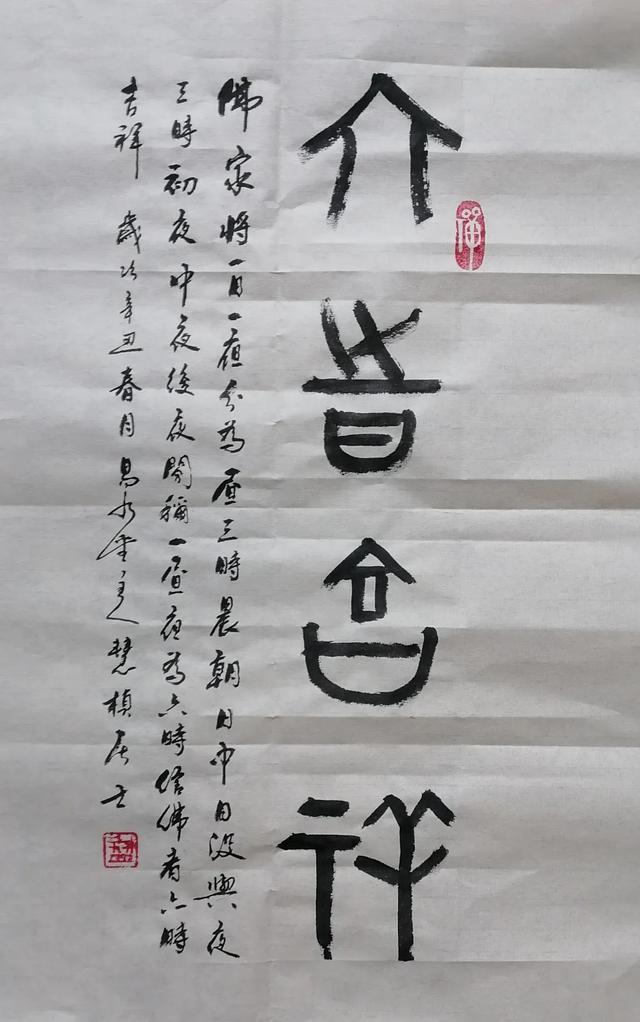 六時吉祥
禅
佛家将一日一夜分為昼三時晨朝日中日没與夜
三時初夜中夜後夜間稱一昼夜為六時信佛者六時
吉祥 歲次辛丑春月 水堂主人慧楨居士